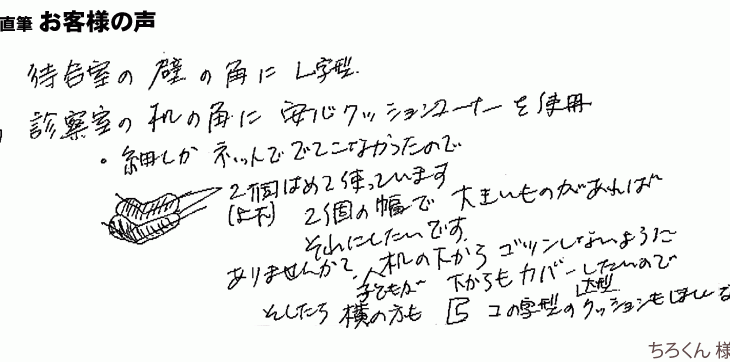 直筆 お客様の声
待合室の壁の角にL字型
診察室の机の角に 安心クッションコーナーを使用
・細しかネットででてこなかったので
2個はめて使っています
2個の幅で大きいものがあれば
それにしたいです。
ありませんかで、机の下からゴツンしないように
子どもが 下からもカバーしたいので
大型
そしたら横の方も コの字型のクッションもほしいな
ちろくん 様